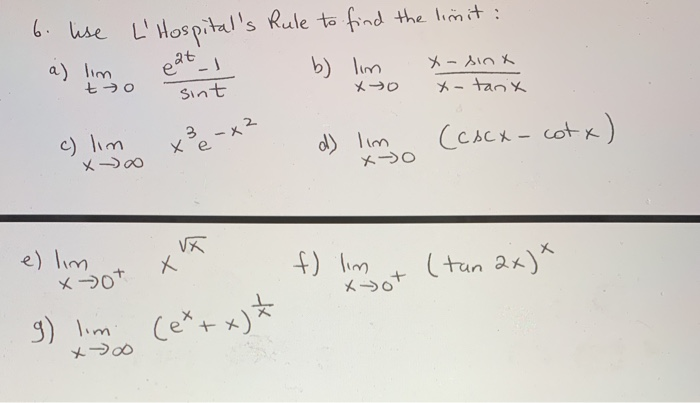 6. Use L'Hospital's Rule to find the limit :
a) lim t→0 (e^{2t} - 1)/(sin t) b) lim x→0 (x - sin x)/(x - tan x)
c) lim x→∞ x^3 e^{-x^2} d) lim x→0 (csc x - cot x)
e) lim x→0+ x^{√x} f) lim x→0+ (tan 2x)^x
g) lim x→∞ (e^x + x)^{1/x}